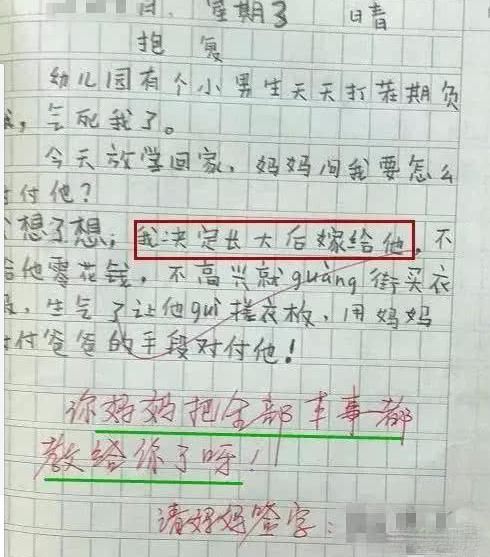 日, 星期3 日晴
抱 复
幼儿园有个小男生天天打茬期负
我,气死我了。
今天放学回家,妈妈问我要怎么
对付他?
想了想,我决定长大后嫁给他,不
给他零花钱,不高兴就guàng街买衣
服,生气了让他guì搓衣板,用妈妈
对付爸爸的手段对付他!
你妈妈把全部本事都
教给你了呀!
请妈妈签字: